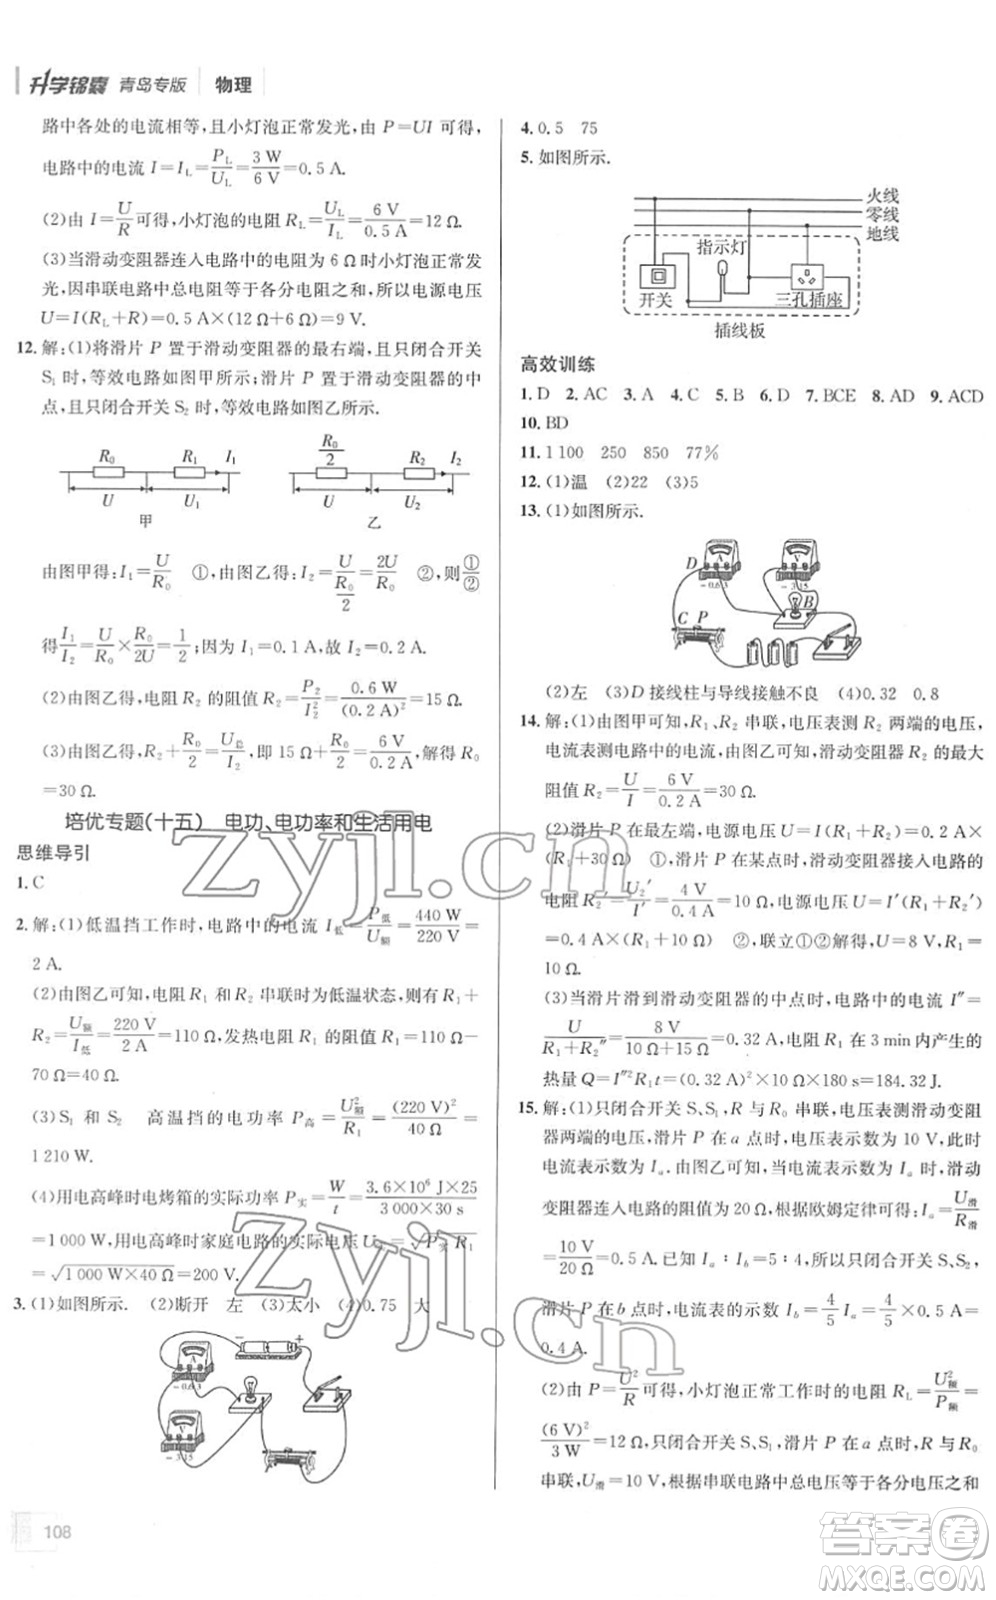 升学锦囊 青岛专版 物理
路中各处的电流相等,且小灯泡正常发光,由 P=UI 可得,
电路中的电流 I=I_L=P_L/U_L=3 W/6 V=0.5 A.
(2)由 I=U/R可得,小灯泡的电阻 R_L=U_L/I_L=6 V/0.5 A=12 Ω.
(3)当滑动变阻器连入电路中的电阻为 6 Ω时小灯泡正常发
光,因串联电路中总电阻等于各分电阻之和,所以电源电压
U=I(R_L+R)=0.5 A×(12 Ω+6 Ω)=9 V.
12.解:(1)将滑片 P 置于滑动变阻器的最右端,且只闭合开关
S₁ 时,等效电路如图甲所示;滑片 P 置于滑动变阻器的中
点,且只闭合开关 S₂ 时,等效电路如图乙所示.
R₀ R₁ I₁
U U₁
甲
R₀/2 R₂ I₂
U U₂
乙
由图甲得:I₁=U/R₀ ①,由图乙得:I₂=U/(R₀/2)=2U/R₀ ②,则①/②
得I₁/I₂=U/R₀×R₀/2U=1/2;因为 I₁=0.1 A,故 I₂=0.2 A.
(2)由图乙得,电阻 R₂ 的阻值 R₂=P₂/I₂²=0.6 W/(0.2 A)²=15 Ω.
(3)由图乙得,R₂+R₀/2=U总/I₂,即 15 Ω+R₀/2=6 V/0.2 A,解得 R₀
=30 Ω.
培优专题(十五) 电功、电功率和生活用电
思维导引
1.C
2.解:(1)低温挡工作时,电路中的电流 I低=P低/U额=440 W/220 V=
2 A.
(2)由图乙可知,电阻 R₁ 和 R₂ 串联时为低温状态,则有 R₁+
R₂=U额/I低=220 V/2 A=110 Ω,发热电阻 R₁ 的阻值 R₁=110 Ω−
70 Ω=40 Ω.
(3)S₁ 和 S₂ 高温挡的电功率 P高=U额²/R₁=(220 V)²/40 Ω=
1 210 W.
(4)用电高峰时电烤箱的实际功率 P实=W/t=3.6×10⁶ J×25/3 000×30 s
=1 000 W,用电高峰时家庭电路的实际电压 U实=√P实R₁
=√1 000 W×40 Ω=200 V.
3.(1)如图所示. (2)断开 左 (3)太小 (4)0.75 大
− +
A
−0.6 3
V
−3 15
108
4.0.5 75
5.如图所示.
火线
零线
地线
指示灯
开关
三孔插座
插线板
高效训练
1.D 2.AC 3.A 4.C 5.B 6.D 7.BCE 8.AD 9.ACD
10.BD
11.1 100 250 850 77%
12.(1)温 (2)22 (3)5
13.(1)如图所示.
D A
−0.6 3
V
−3 15
B
C P
(2)左 (3)D 接线柱与导线接触不良 (4)0.32 0.8
14.解:(1)由图甲可知,R₁、R₂ 串联,电压表测 R₂ 两端的电压,
电流表测电路中的电流,由图乙可知,滑动变阻器 R₂ 的最大
阻值 R₂=U/I=6 V/0.2 A=30 Ω.
(2)滑片 P 在最左端时,电源电压 U=I(R₁+R₂)=0.2 A×
(R₁+30 Ω) ①,滑片 P 在某点时,滑动变阻器接入电路的
电阻为 R₂′=U₂′/I′=4 V/0.4 A=10 Ω,电源电压 U=I′(R₁+R₂′)
=0.4 A×(R₁+10 Ω) ②,联立①②解得,U=8 V,R₁=
10 Ω.
(3)当滑片滑到滑动变阻器的中点时,电路中的电流 I″=
U/(R₁+R₂″)=8 V/(10 Ω+15 Ω)=0.32 A,电阻 R₁ 在 3 min内产生的
热量 Q=I″²R₁t=(0.32 A)²×10 Ω×180 s=184.32 J.
15.解:(1)只闭合开关 S、S₁,R 与 R₀ 串联,电压表测滑动变阻
器两端的电压,滑片 P 在 a 点时,电压表示数为 10 V,此时
电流表示数为 I_a.由图乙可知,当电流表示数为 I_a 时,滑动
变阻器连入电路的阻值为 20 Ω,根据欧姆定律可得:I_a=U滑/R滑
=10 V/20 Ω=0.5 A.已知 I_a∶I_b=5∶4,所以只闭合开关 S、S₂,
滑片 P 在 b 点时,电流表的示数 I_b=4/5 I_a=4/5×0.5 A=
0.4 A.
(2)由 P=U²/R可得,小灯泡正常工作时的电阻 R_L=U额²/P额=
(6 V)²/3 W=12 Ω;只闭合开关 S、S₁,滑片 P 在 a 点时,R 与 R₀
串联,U滑=10 V,根据串联电路中总电压等于各分电压之和
zyjl.cn
zyjl.cn
答案圈